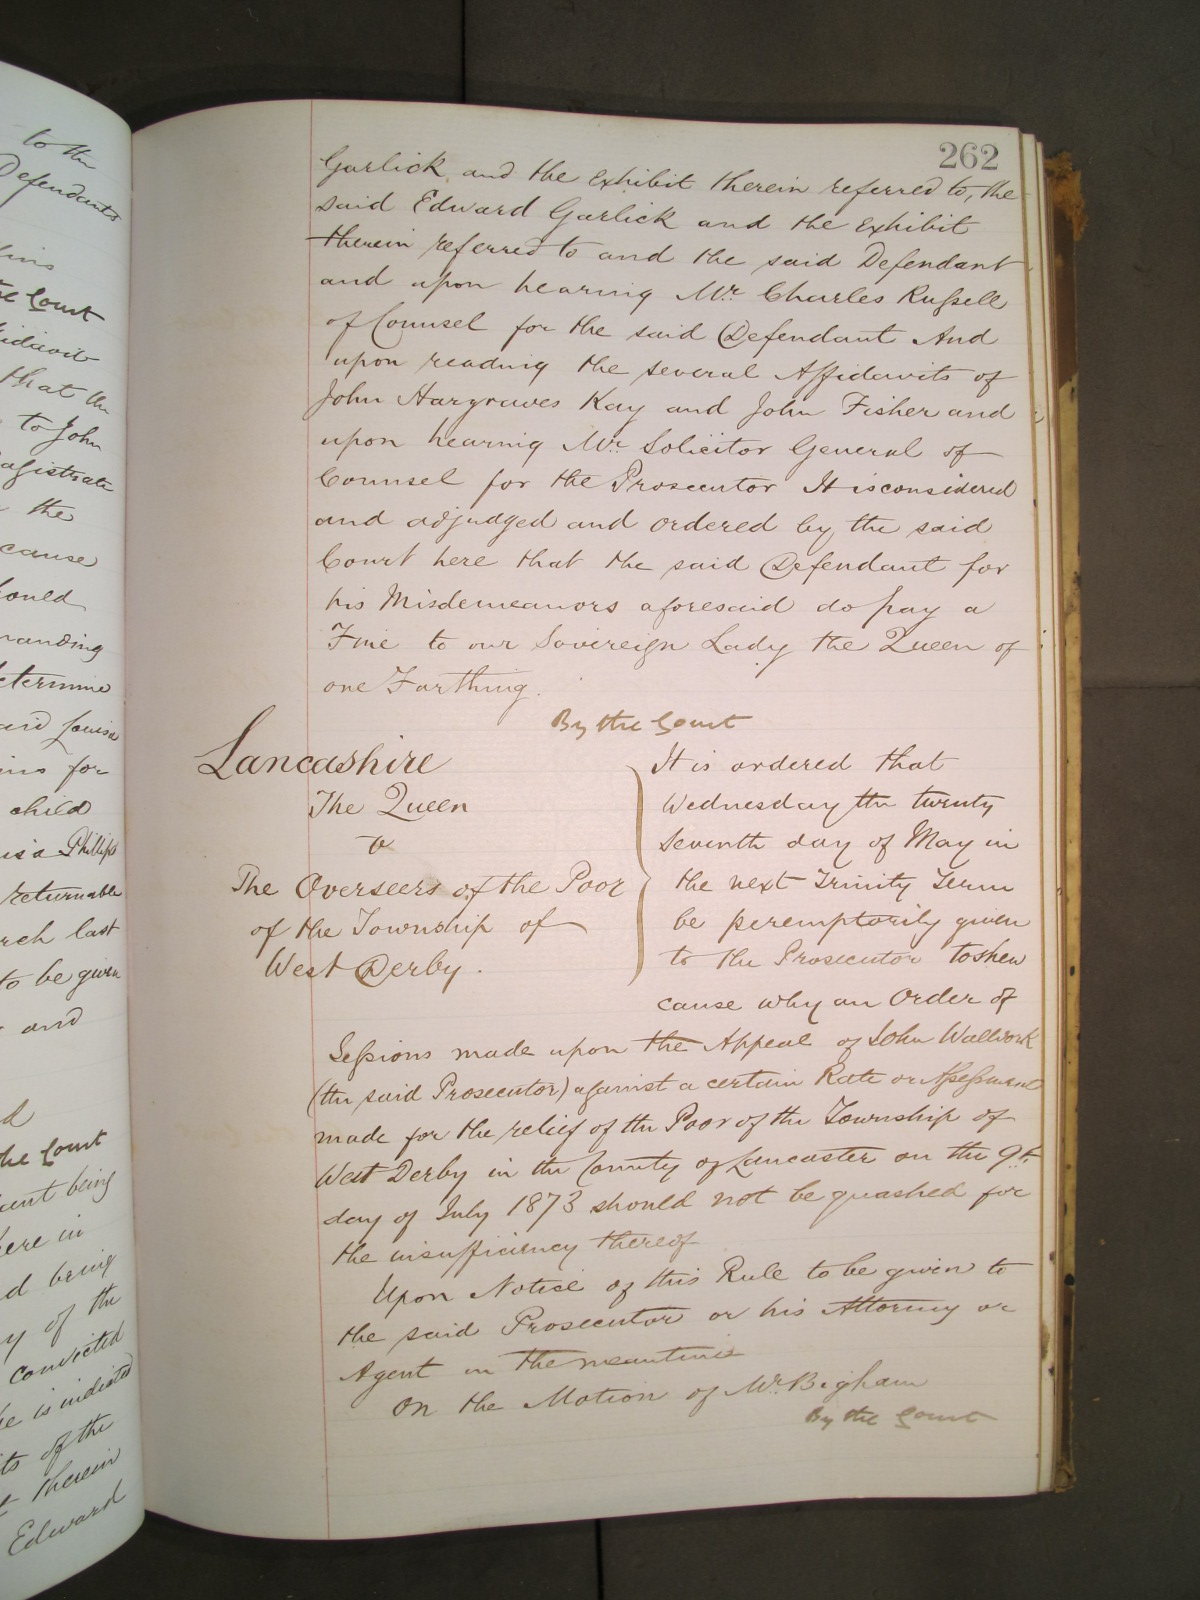 to the
Defendants
the Court
that the
to John
the
cause
child
Phillips
returnable
last
to be given
and
the Court
being
in
being
of the
convicted
is indicted
of the
therein
Edward
262
Garlick and the exhibit therein referred to, the
said Edward Garlick and the exhibit
therein referred to and the said Defendant
and upon hearing Mr. Charles Russell
of Counsel for the said Defendant And
upon reading the several Affidavits of
John Hargraves Kay and John Fisher and
upon hearing Mr. Solicitor General of
Counsel for the Prosecutor It is considered
and adjudged and ordered by the said
Court here that the said Defendant for
his Misdemeanors aforesaid do pay a
Fine to our Sovereign Lady the Queen of
one Farthing.
By the Court
Lancashire
The Queen
v
The Overseers of the Poor
of the Township of
West Derby.
It is ordered that
Wednesday the twenty
seventh day of May in
the next Trinity Term
be peremptorily given
to the Prosecutor to shew
cause why an Order of
Sessions made upon the Appeal of John Wallwork
(the said Prosecutor) against a certain Rate or Assessment
made for the relief of the Poor of the Township of
West Derby in the County of Lancaster on the 9th
day of July 1873 should not be quashed for
the insufficiency thereof
Upon Notice of this Rule to be given to
the said Prosecutor or his Attorney or
Agent in the meantime
On the Motion of Mr. Bigham
By the Court